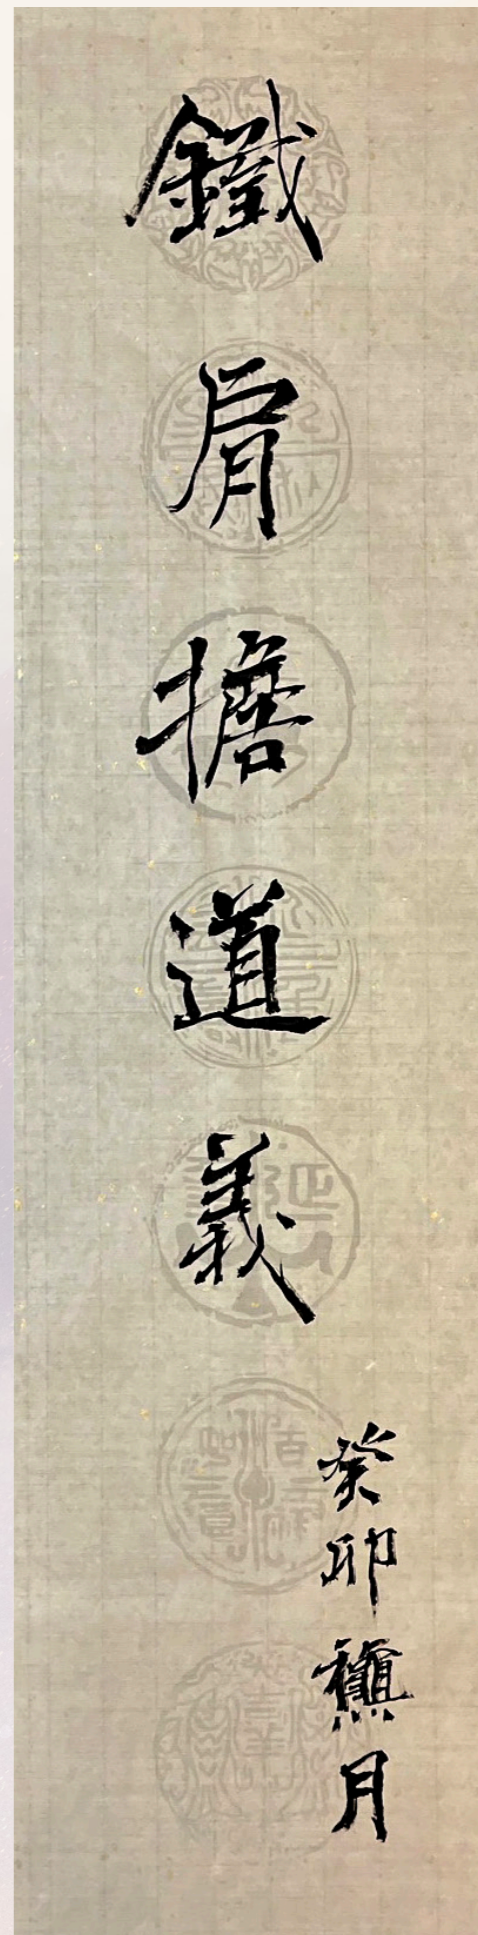 鐵肩擔道義
癸卯月